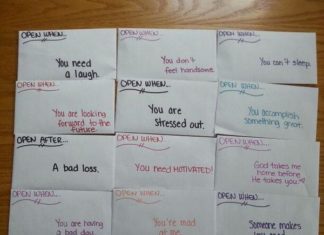 OPEN WHEN...
You need
a laugh.
OPEN WHEN...
You don't
feel handsome.
OPEN WHEN...
You can't sleep.
OPEN WHEN...
You are looking
forward to the
future.
OPEN WHEN...
You are
stressed out.
OPEN WHEN...
You accomplish
something great.
OPEN AFTER...
A bad loss.
OPEN WHEN...
You need MOTIVATED!
OPEN WHEN...
God takes me
home before
He takes you.
OPEN WHEN...
You are having
a bad day.
OPEN WHEN...
You're mad
at me.
OPEN WHEN...
Someone makes
you